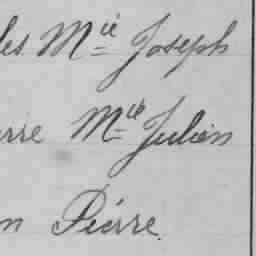 les Mie Joseph
erre Mie Julien
n Pierre